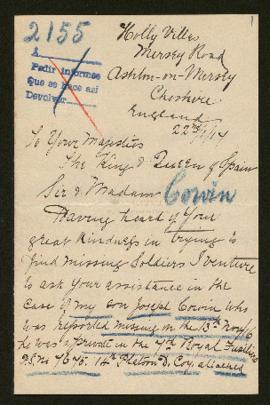 2155
Holly Villas
Mersey Road
A
Pedir informes
Que se hace así
Devolver
Ashton-on-Mersey
Cheshire
England
22nd/1/17
To Your Majesties
The King & Queen of Spain
Sir & Madam
Corwin
Having heard of Your
great kindness in trying to
find missing Soldiers I venture
to ask your assistance in the
case of my son Joseph Corwin who
was reported missing on the 13th Nov/16
he was a private in the 7th Royal Fusiliers
14th Platon D, Coy, attached